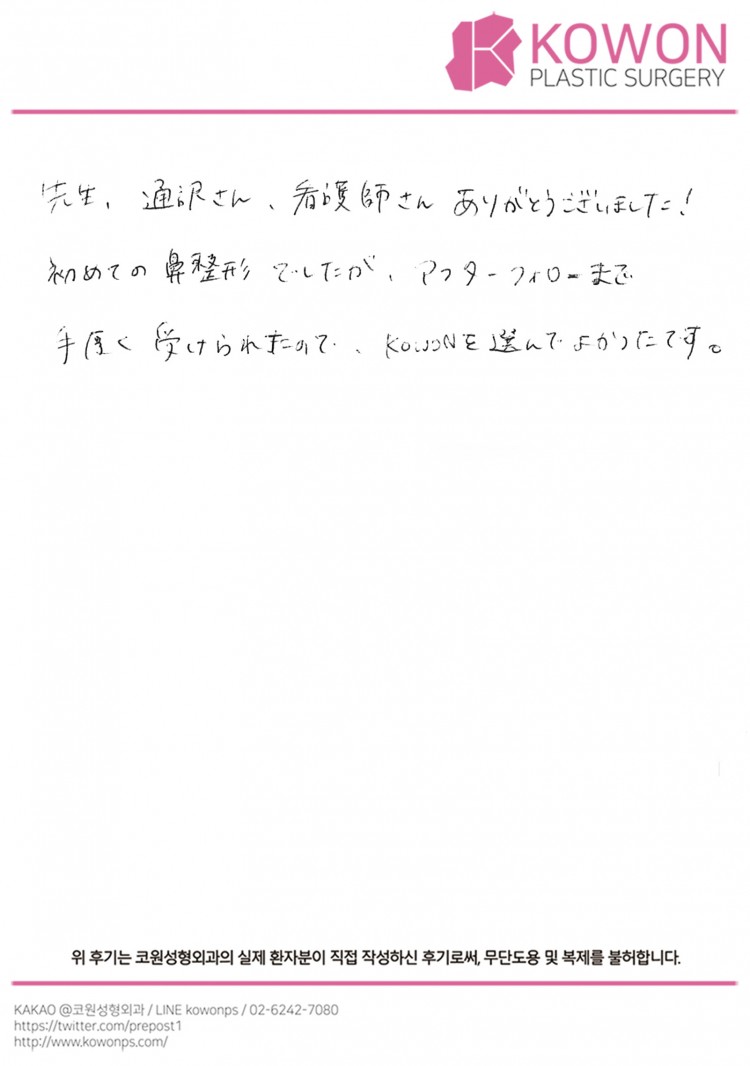 KOWON
PLASTIC SURGERY
先生、通訳さん、看護師さん ありがとうございました!
初めての鼻整形でしたが、アフターフォローまで
手厚く受けられたので、KOWONを選んでよかったです。
위 후기는 코원성형외과의 실제 환자분이 직접 작성하신 후기로써, 무단도용 및 복제를 불허합니다.
KAKAO @코원성형외과 / LINE kowonps / 02-6242-7080
https://twitter.com/prepost1
http://www.kowonps.com/